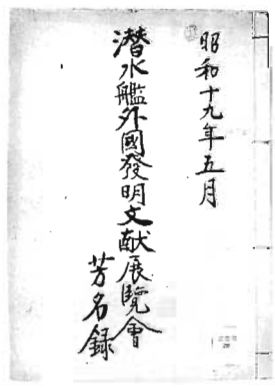 昭和十九年五月
潜水艦外國發明文献展覧會
芳名録